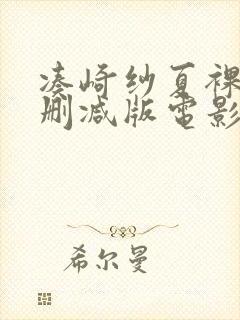 凑崎纱夏裸
删减版电影
希尔曼